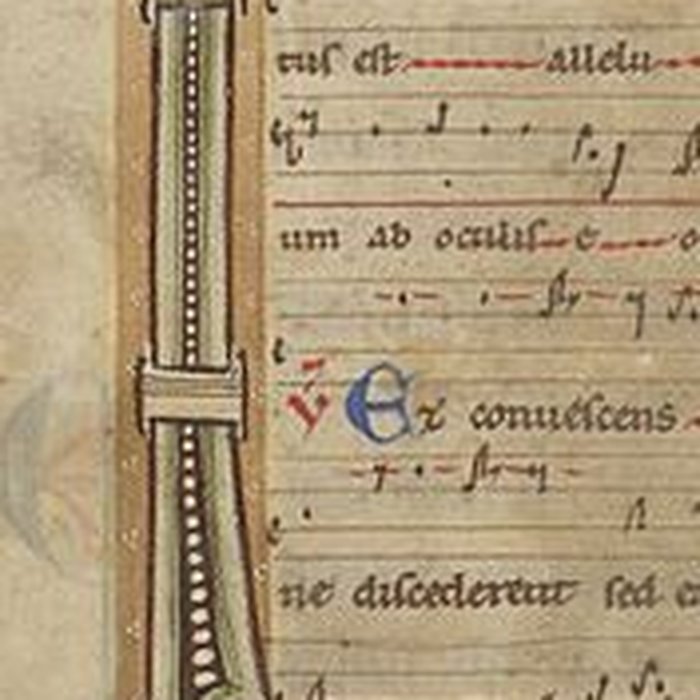 tus est allelu
um ab oculis e
℣ Ex conuescens
ne discederent sed